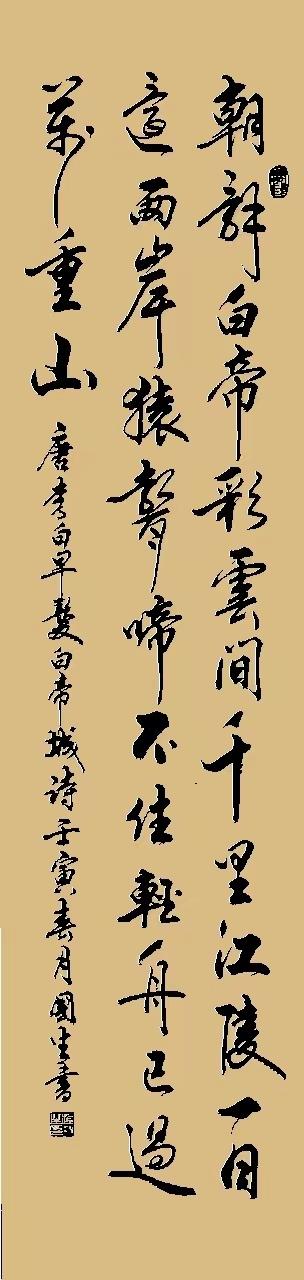 朝辭白帝彩雲間千里江陵一日
還兩岸猿聲啼不住輕舟已過
萬重山
唐李白早發白帝城詩壬寅春月國生書